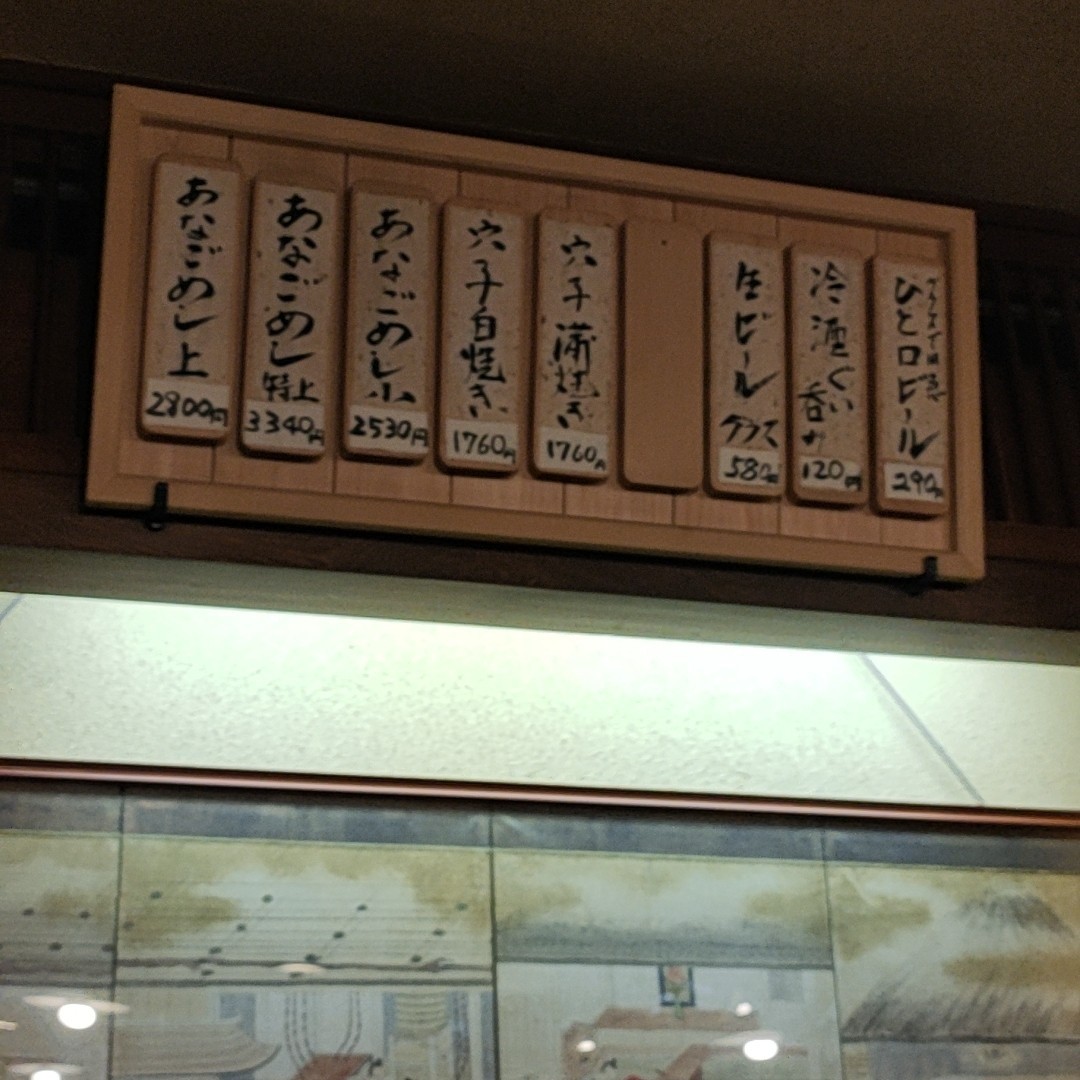 あなごめし上
2800円
あなごめし特上
3340円
あなごめし小
2530円
穴子白焼き
1760円
穴子蒲焼き
1760円
生ビール
グラス
580円
冷酒ぐい
呑み
120円
ひと口ビール
290円